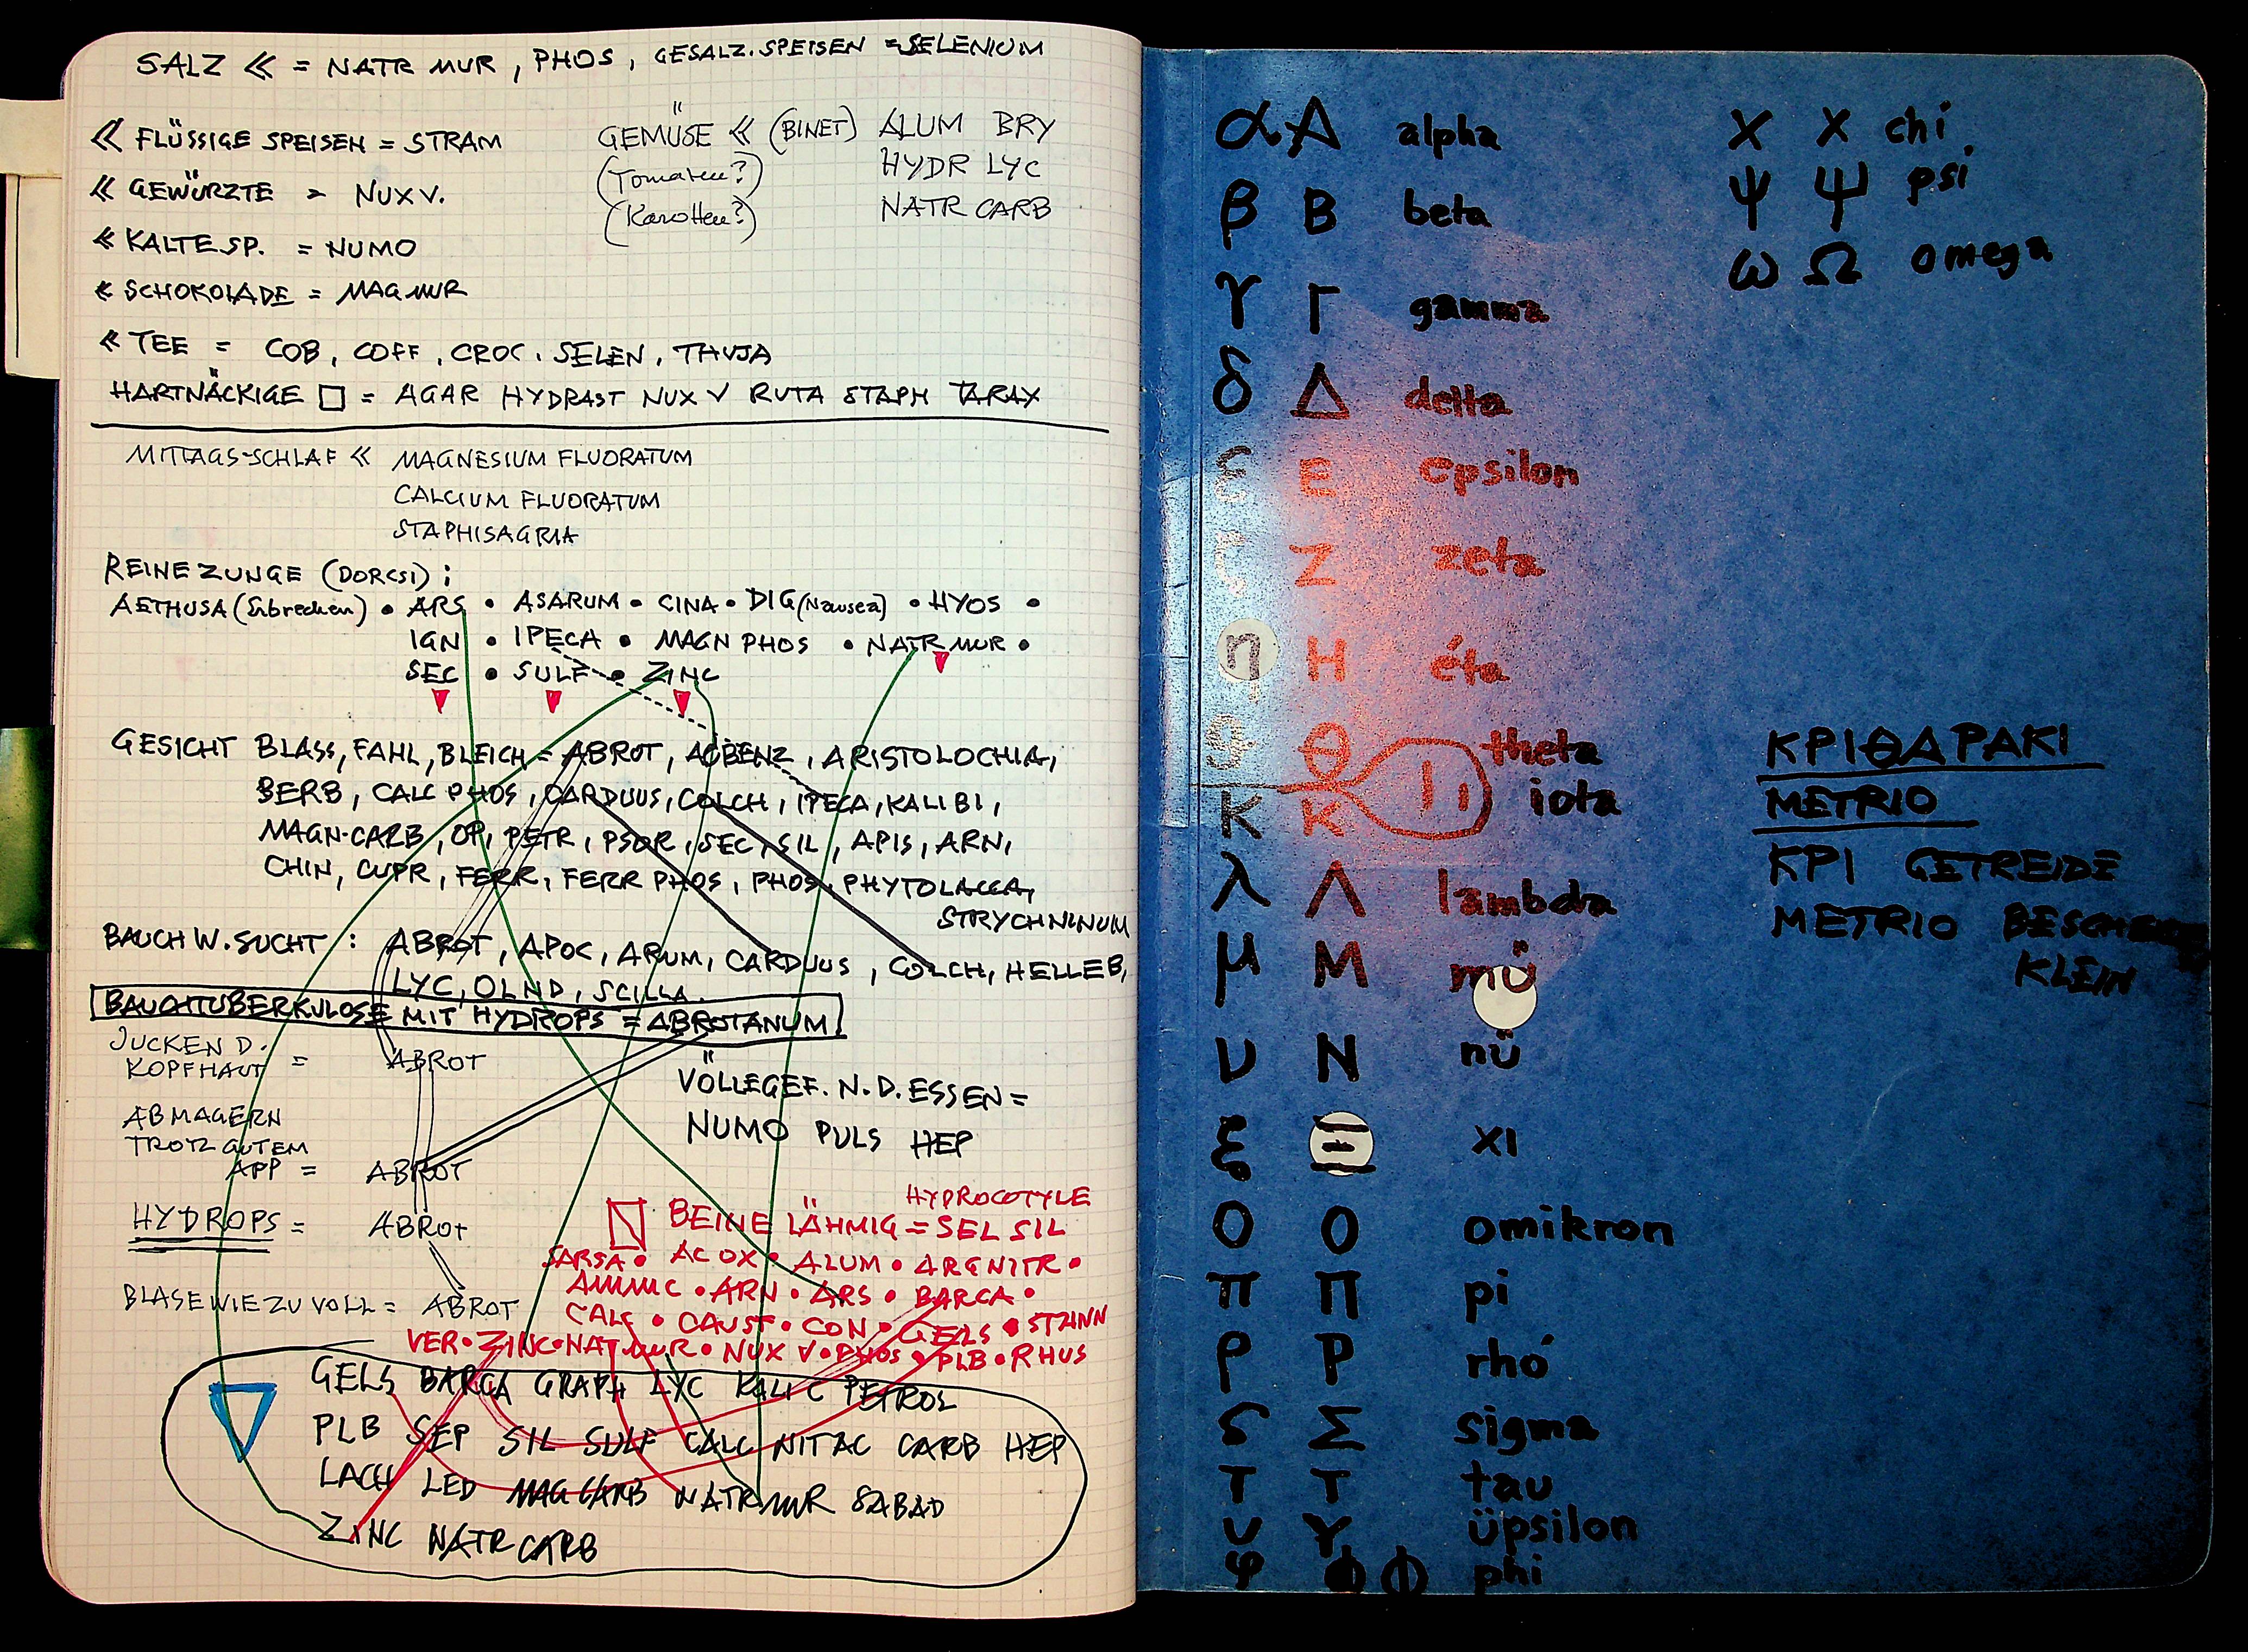 SALZ << = NATR MUR, PHOS, GESALZ. SPEISEN = SELENIUM
<< FLÜSSIGE SPEISEN = STRAM
<< GEWÜRZTE = NUX V.
<< KALTE SP. = NUMO
< SCHOKOLADE = MAG MUR
<< TEE = COB, COFF, CROC, SELEN, THUJA
GEMÜSE << (BINET) ALUM BRY
(Tomaten?) HYDR LYC
(Karotten?) NATR CARB
HARTNÄCKIGE □ = AGAR HYDRAST NUX V RUTA STAPH TARAX
MITTAGS-SCHLAF << MAGNESIUM FLUORATUM
CALCIUM FLUORATUM
STAPHISAGRIA
REINE ZUNGE (DORCSI):
AETHUSA (Erbrechen) • ARS • ASARUM • CINA • DIG (Nausea) • HYOS •
IGN • IPECA • MAGN PHOS • NATR MUR •
SEC • SULF • ZINC
GESICHT BLASS, FAHL, BLEICH = ABROT, AC BENZ, ARISTOLOCHIA,
BERB, CALC PHOS, CARDUUS, COLCH, IPECA, KALI BI,
MAGN-CARB, OP, PETR, PSOR, SEC, SIL, APIS, ARN,
CHIN, CUPR, FERR, FERR PHOS, PHOS, PHYTOLACCA,
STRYCHNINUM
BAUCH W. SUCHT : ABROT, APOC, ARUM, CARDUUS, COLCH, HELLEB,
LYC, OLND, SCILLA
BAUCHTUBERKULOSE MIT HYDROPS = ABROTANUM
JUCKEN D.
KOPFHAUT = ABROT
ABMAGERN
TROTZ GUTEM
APP = ABROT
HYDROPS = ABROT
BLASE WIE ZU VOLL = ABROT
VÖLLEGEF. N. D. ESSEN =
NUMO PULS HEP
HYDROCOTYLE
BEINE LÄHMIG = SEL SIL
SARSA • AC OX • ALUM • ARG NITR •
AMMC • ARN • ARS • BARCA •
CALC • CAUST • CON • GELS • STANN
VER • ZINC • NAT MUR • NUX V • PHOS • PLB • RHUS
GELS BARCA GRAPH LYC KALI C PETROL
PLB SEP SIL SULF CALC NIT AC CARB HEP
LACH LED MAG CARB NATR MUR SABAD
ZINC NATR CARB
α Α alpha
β Β beta
γ Γ gamma
δ Δ delta
ε Ε epsilon
ζ Ζ zeta
η Η éta
θ Θ theta
Ι ι iota
κ Κ
λ Λ lambda
μ Μ mü
ν Ν nü
ξ Ξ xi
ο Ο omikron
π Π pi
ρ Ρ rhó
ς Σ sigma
τ Τ tau
υ Υ üpsilon
φ Φ Φ phi
χ Χ chi
ψ Ψ psi
ω Ω omega
ΚΡΙΘΑΡΑΚΙ
METRIO
KPI GETREIDE
METRIO
KLEIN